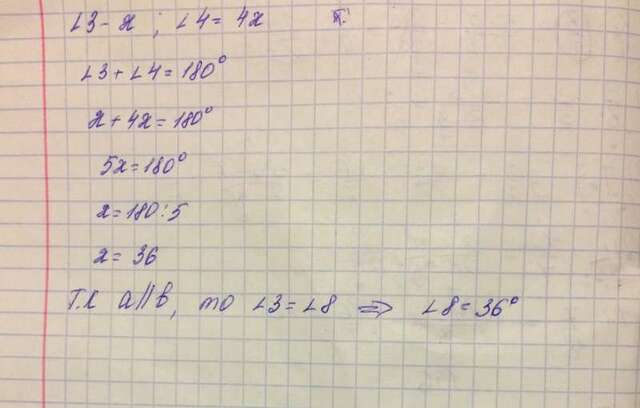 ∠3 - x ; ∠4 = 4x
∠3 + ∠4 = 180°
x + 4x = 180°
5x = 180°
x = 180 : 5
x = 36
Т.к a||b, то ∠3 = ∠8 ⇒ ∠8 = 36°